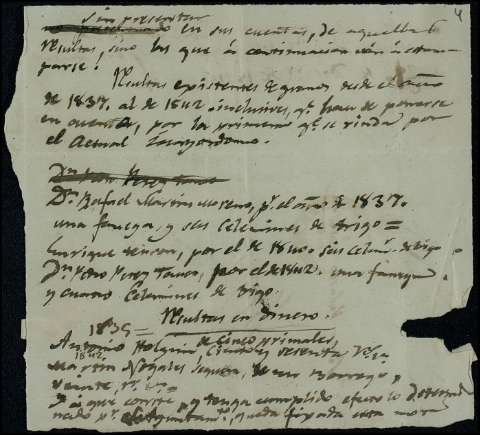 sin presentar
en sus cuentas, de aquellas
resultas, sino las que á continuacion van á estam-
parse:
Resultas existentes de granos desde el año
de 1837, al de 1842 inclusives, qe. han de ponerse
en cuenta, por la primera qe. se rinda por
el Actual Mayordomo.
Dn. Rafael Marin Moreno, pr. el año de 1837.
una fanega, y seis Celemines de trigo =
Enrique, por el de 1840. seis Celem. de trigo
Dn. Pedro Perez, por el de 1842. una fanega
y cuatro Celemines de trigo.
1839 = Resultas en Dinero.
Antonio Holguin de cinco primales,
1842. ciento y sesenta rs. vn.
Martin Nogales Segura, de un Borrego,
veinte, rs. vn. =
I á que conste, y tenga cumplido efecto lo determi-
nado pr. el Ayuntamto., queda fijada esta